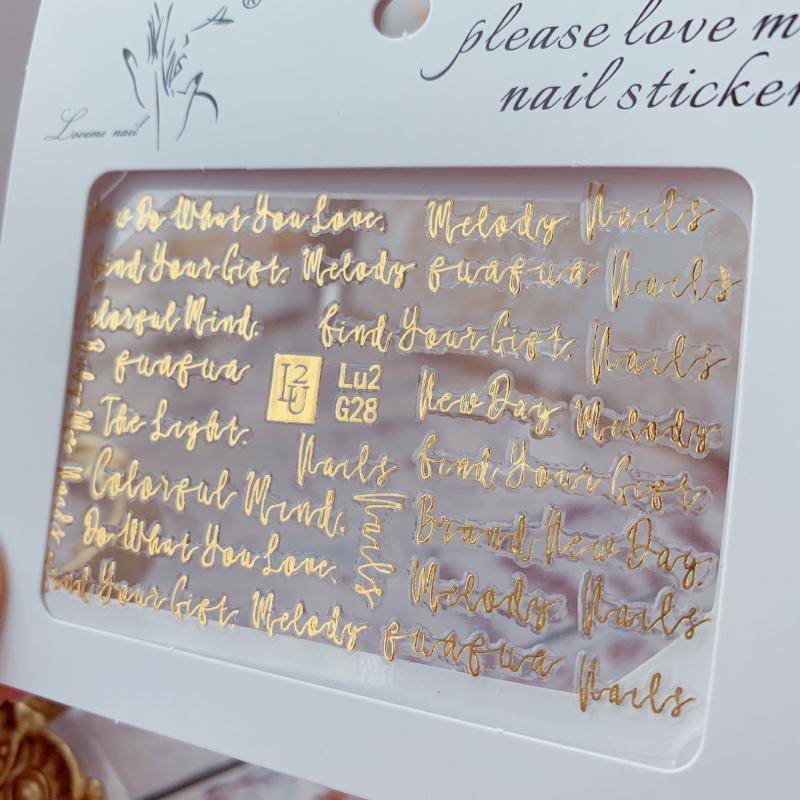 ®
please love m
nail sticker
Loveme nail
ew Do What You Love. Melody Nails
Find Your Gift. Melody fuafua Nails
Colorful Mind. Find Your Gift. Nails
fuafua L2U Lu2 G28 New Day. Melody
The Light. Nails Find Your Gift.
Colorful Mind. Nails Brand New Day.
Do What You Love. Melody Nails
Find Your Gift. Melody fuafua Nails